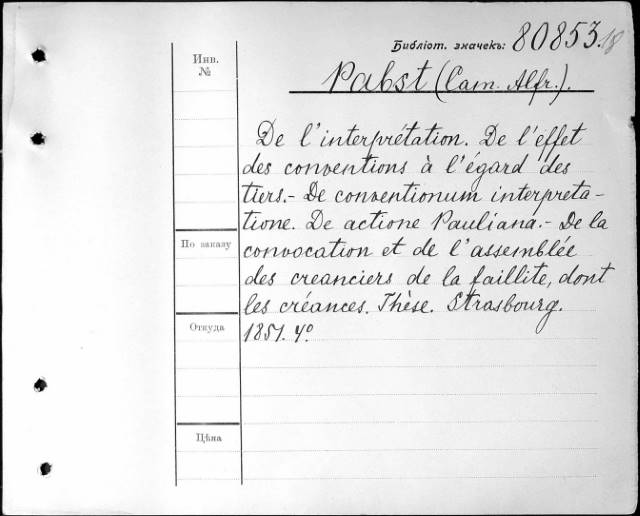 Библіот. значекъ: 80853.18
Инв.
№
Pabst (Cam. Alfr.).
De l'interprétation. De l'effet
des conventions à l'égard des
tiers.- De conventionum interpreta-
tione. De actione Pauliana.- De la
По заказу
convocation et de l'assemblée
des creanciers de la faillite, dont
les créances. Thèse. Strasbourg.
Откуда
1851. 4º
Цѣна